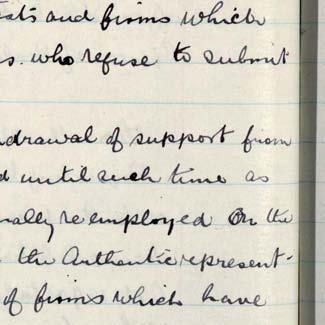 sts and firms which
s. who refuse to submit
drawal of support from
d until such time as
nally re employed On the
the Authentic represent-
of firms which have